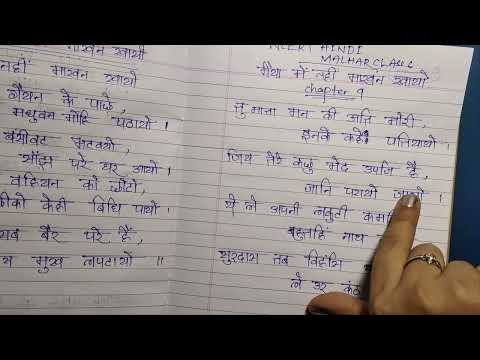 माखन खायो
नहीं माखन खायो
गैयन के पाछे,
मधुवन मोहि पठायो।
बंसीवट भटक्यो,
साँझ परे घर आयो।
बहियन को छोटो,
केही बिधि पायो।
बैर परे हैं,
मुख लपटायो॥
HINDI
MALHAR CLASS 6
मैया मैं नहीं माखन खायो
chapter 9
तु माता मन की अति भोरी,
इनके कहे पतियायो।
जिय तेरे कछु भेद उपजि है,
जानि परायो
ये ले अपनी लकुटी
बहुतहिं नाच
सुरदास तब विहंसि
ले उर कंठ